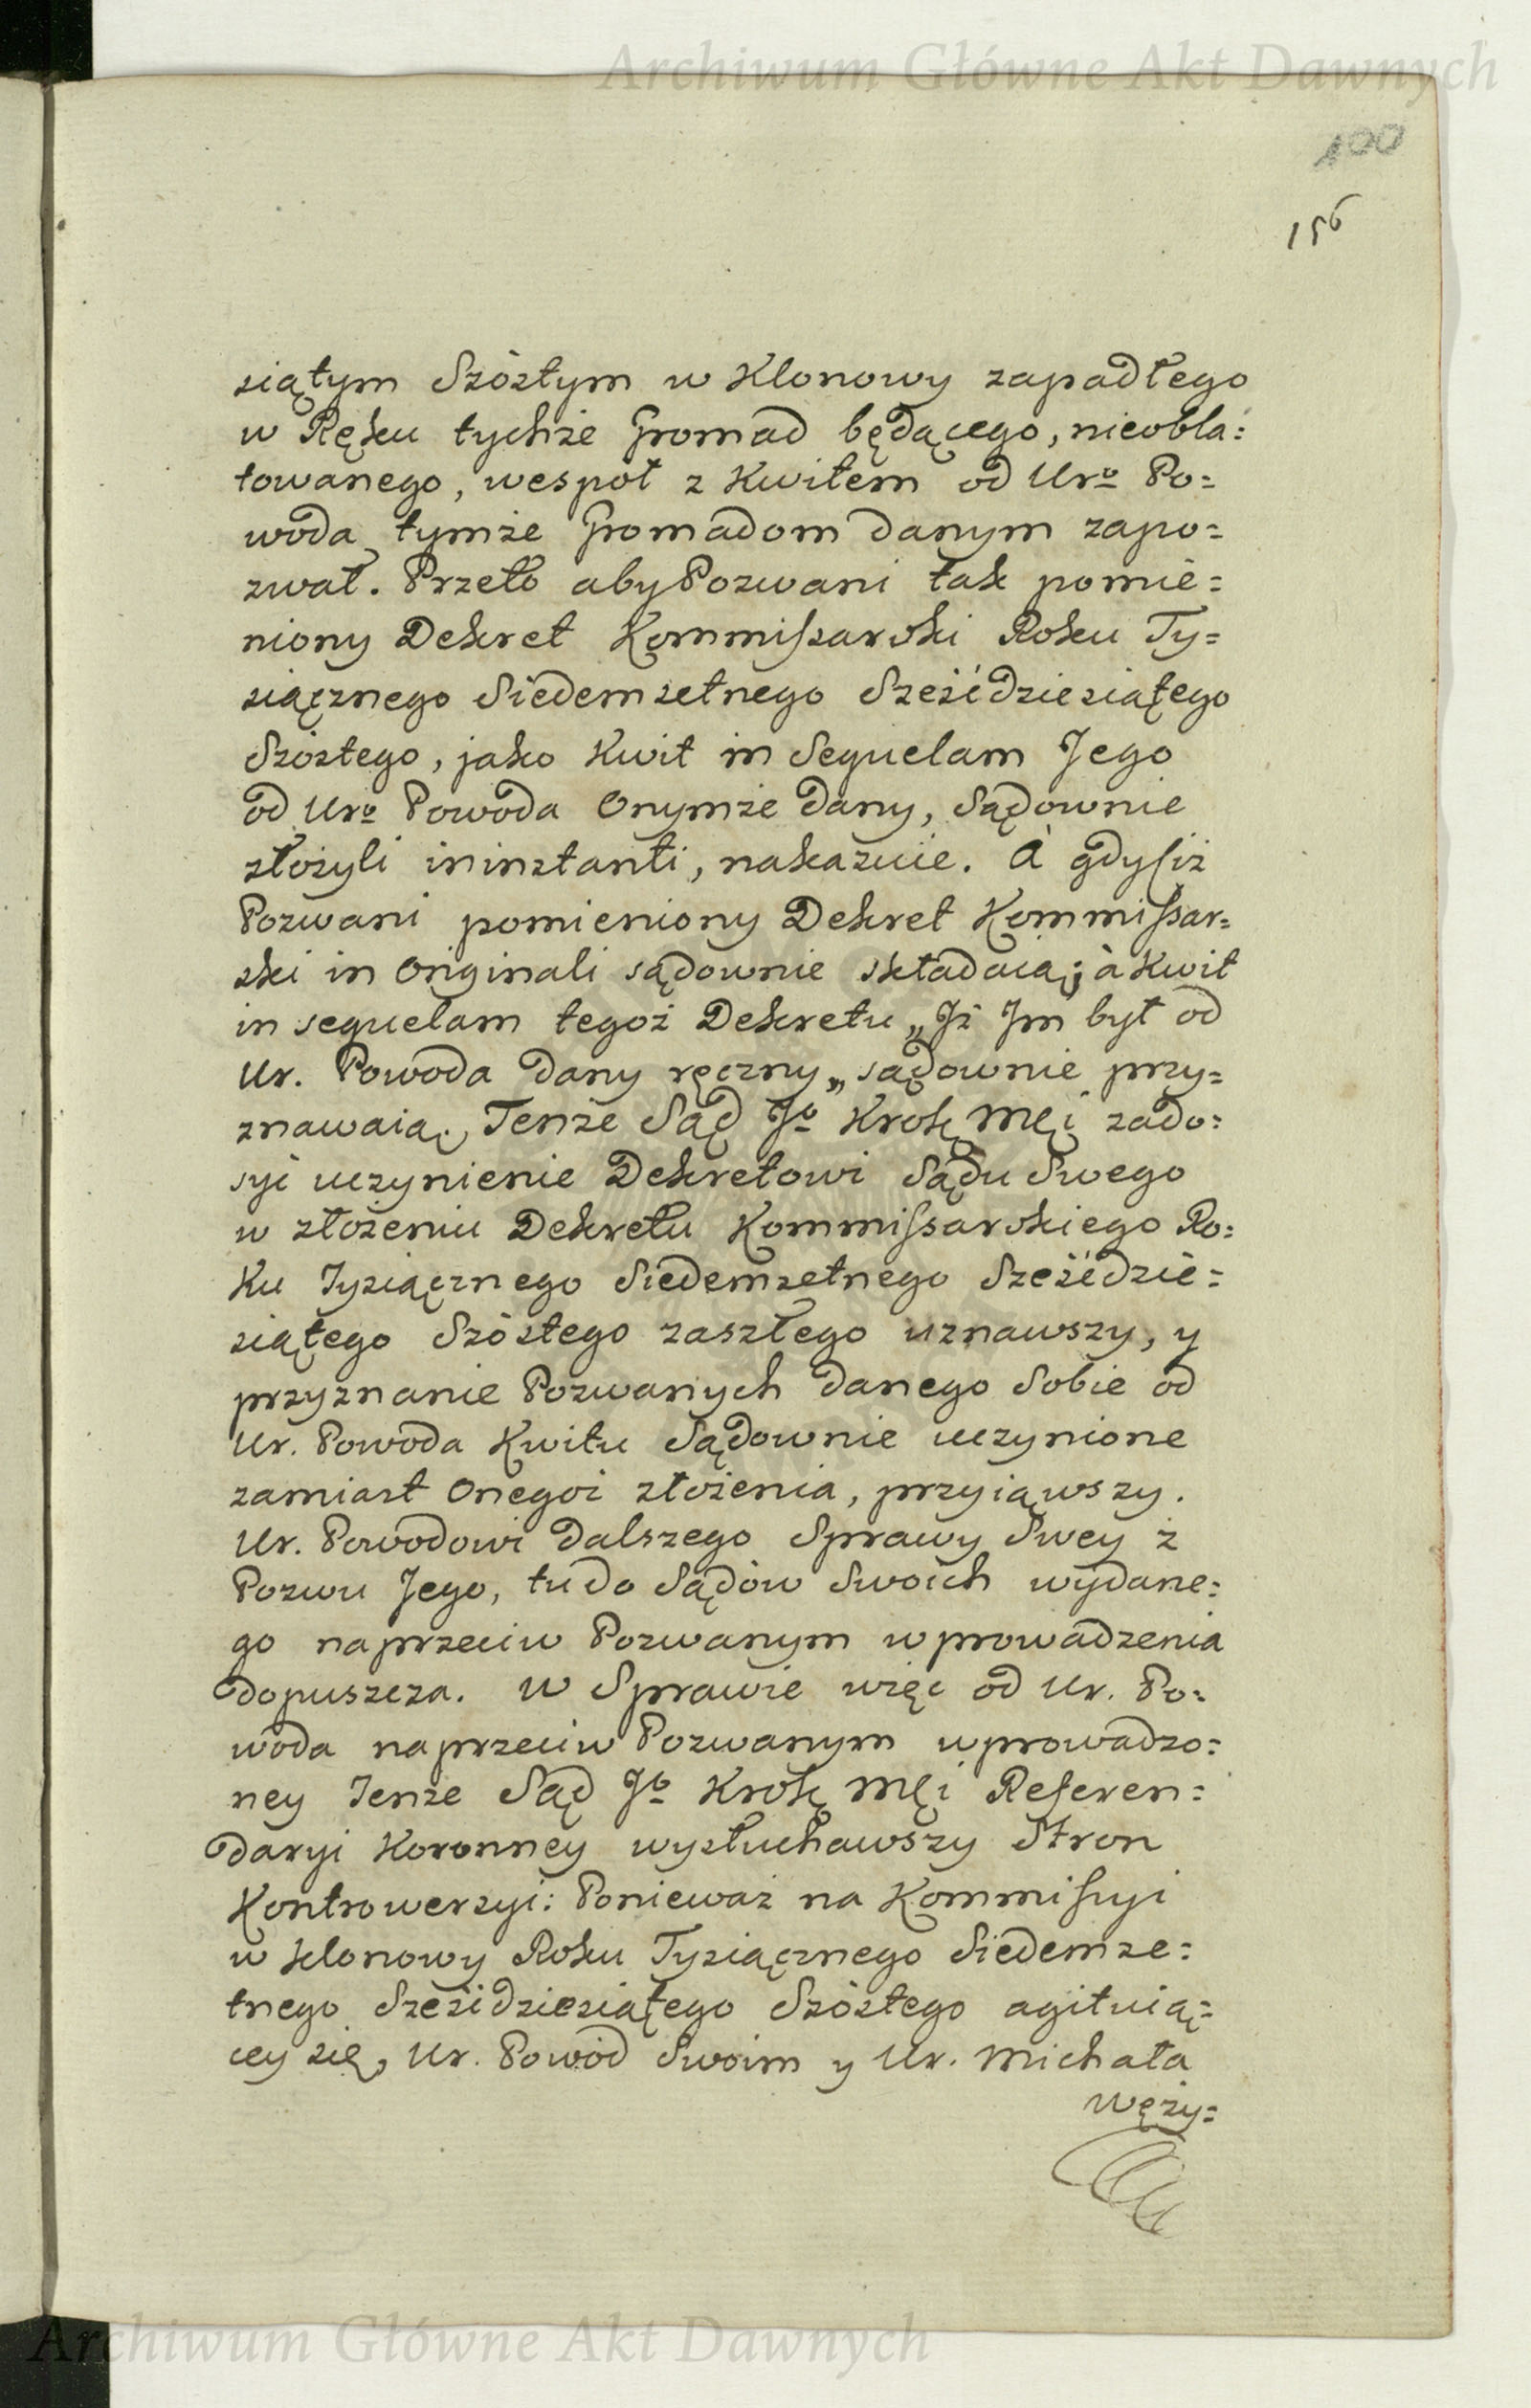 Archiwum Główne Akt Dawnych
100
156
siątym Szóstym w Klonowy zapadłego
w Ręku tychże Gromad będącego, nieobla=
towanego, wespoł z Kwitem od Uro Po=
woda tymże Gromadom danym zapo=
zwał. Przeto aby Pozwani tak pomie=
niony Dekret Kommissarski Roku Ty=
siącznego Siedemsetnego Sześćdziesiątego
Szóstego, jako Kwit in Sequelam Jego
od Uro Powoda Onymże dany, Sądownie
złożyli in instanti, nakazuie. A gdysiż
Pozwani pomieniony Dekret Kommissar=
ski in Originali sądownie składaią; à Kwit
in sequelam tegoż Dekretu „Iż Im był od
Ur. Powoda dany ręczny„ sądownie przy=
znawaią, Tenże Sąd Jo Krolę Mći zado=
syć uczynienie Dekretowi Sądu Swego
w złożeniu Dekretu Kommissarskiego Ro=
ku Tysiącznego Siedemsetnego Sześćdzie=
siątego Szóstego zaszłego uznawszy, y
przyznanie Pozwanych danego Sobie od
Ur. Powoda Kwitu Sądownie uczynione
zamiast Onegoż złożenia, przyiąwszy.
Ur. Powodowi dalszego Sprawy Swey z
Pozwu Jego, tu do Sądów Swoich wydane=
go naprzeciw Pozwanym wprowadzenia
dopuszcza. W Sprawie więc od Ur. Po=
woda naprzeciw Pozwanym wprowadzo=
ney Tenże Sąd Jo Krolę Mći Referen=
daryi Koronney wysłuchawszy Stron
Kontrowersyi: Ponieważ na Kommissyi
w Klonowy Roku Tysiącznego Siedemse=
tnego Sześćdziesiątego Szóstego agituią=
cey się, Ur. Powód Swoim y Ur. Michała
Węży=
Archiwum Główne Akt Dawnych